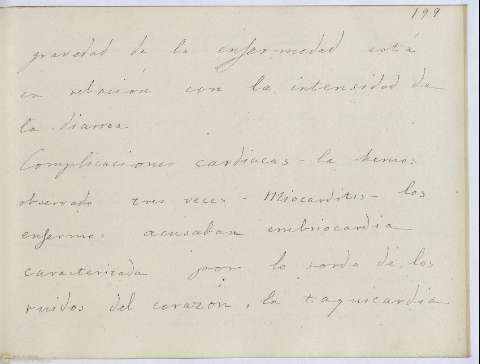 199
gravedad de la enfermedad está
en relación con la intensidad de
la diarrea.
Complicaciones cardiacas - la hemos
observado tres veces - Miocarditis - los
enfermos acusaban embriocardia
caracterizada por lo sordo de los
ruidos del corazón, la taquicardia